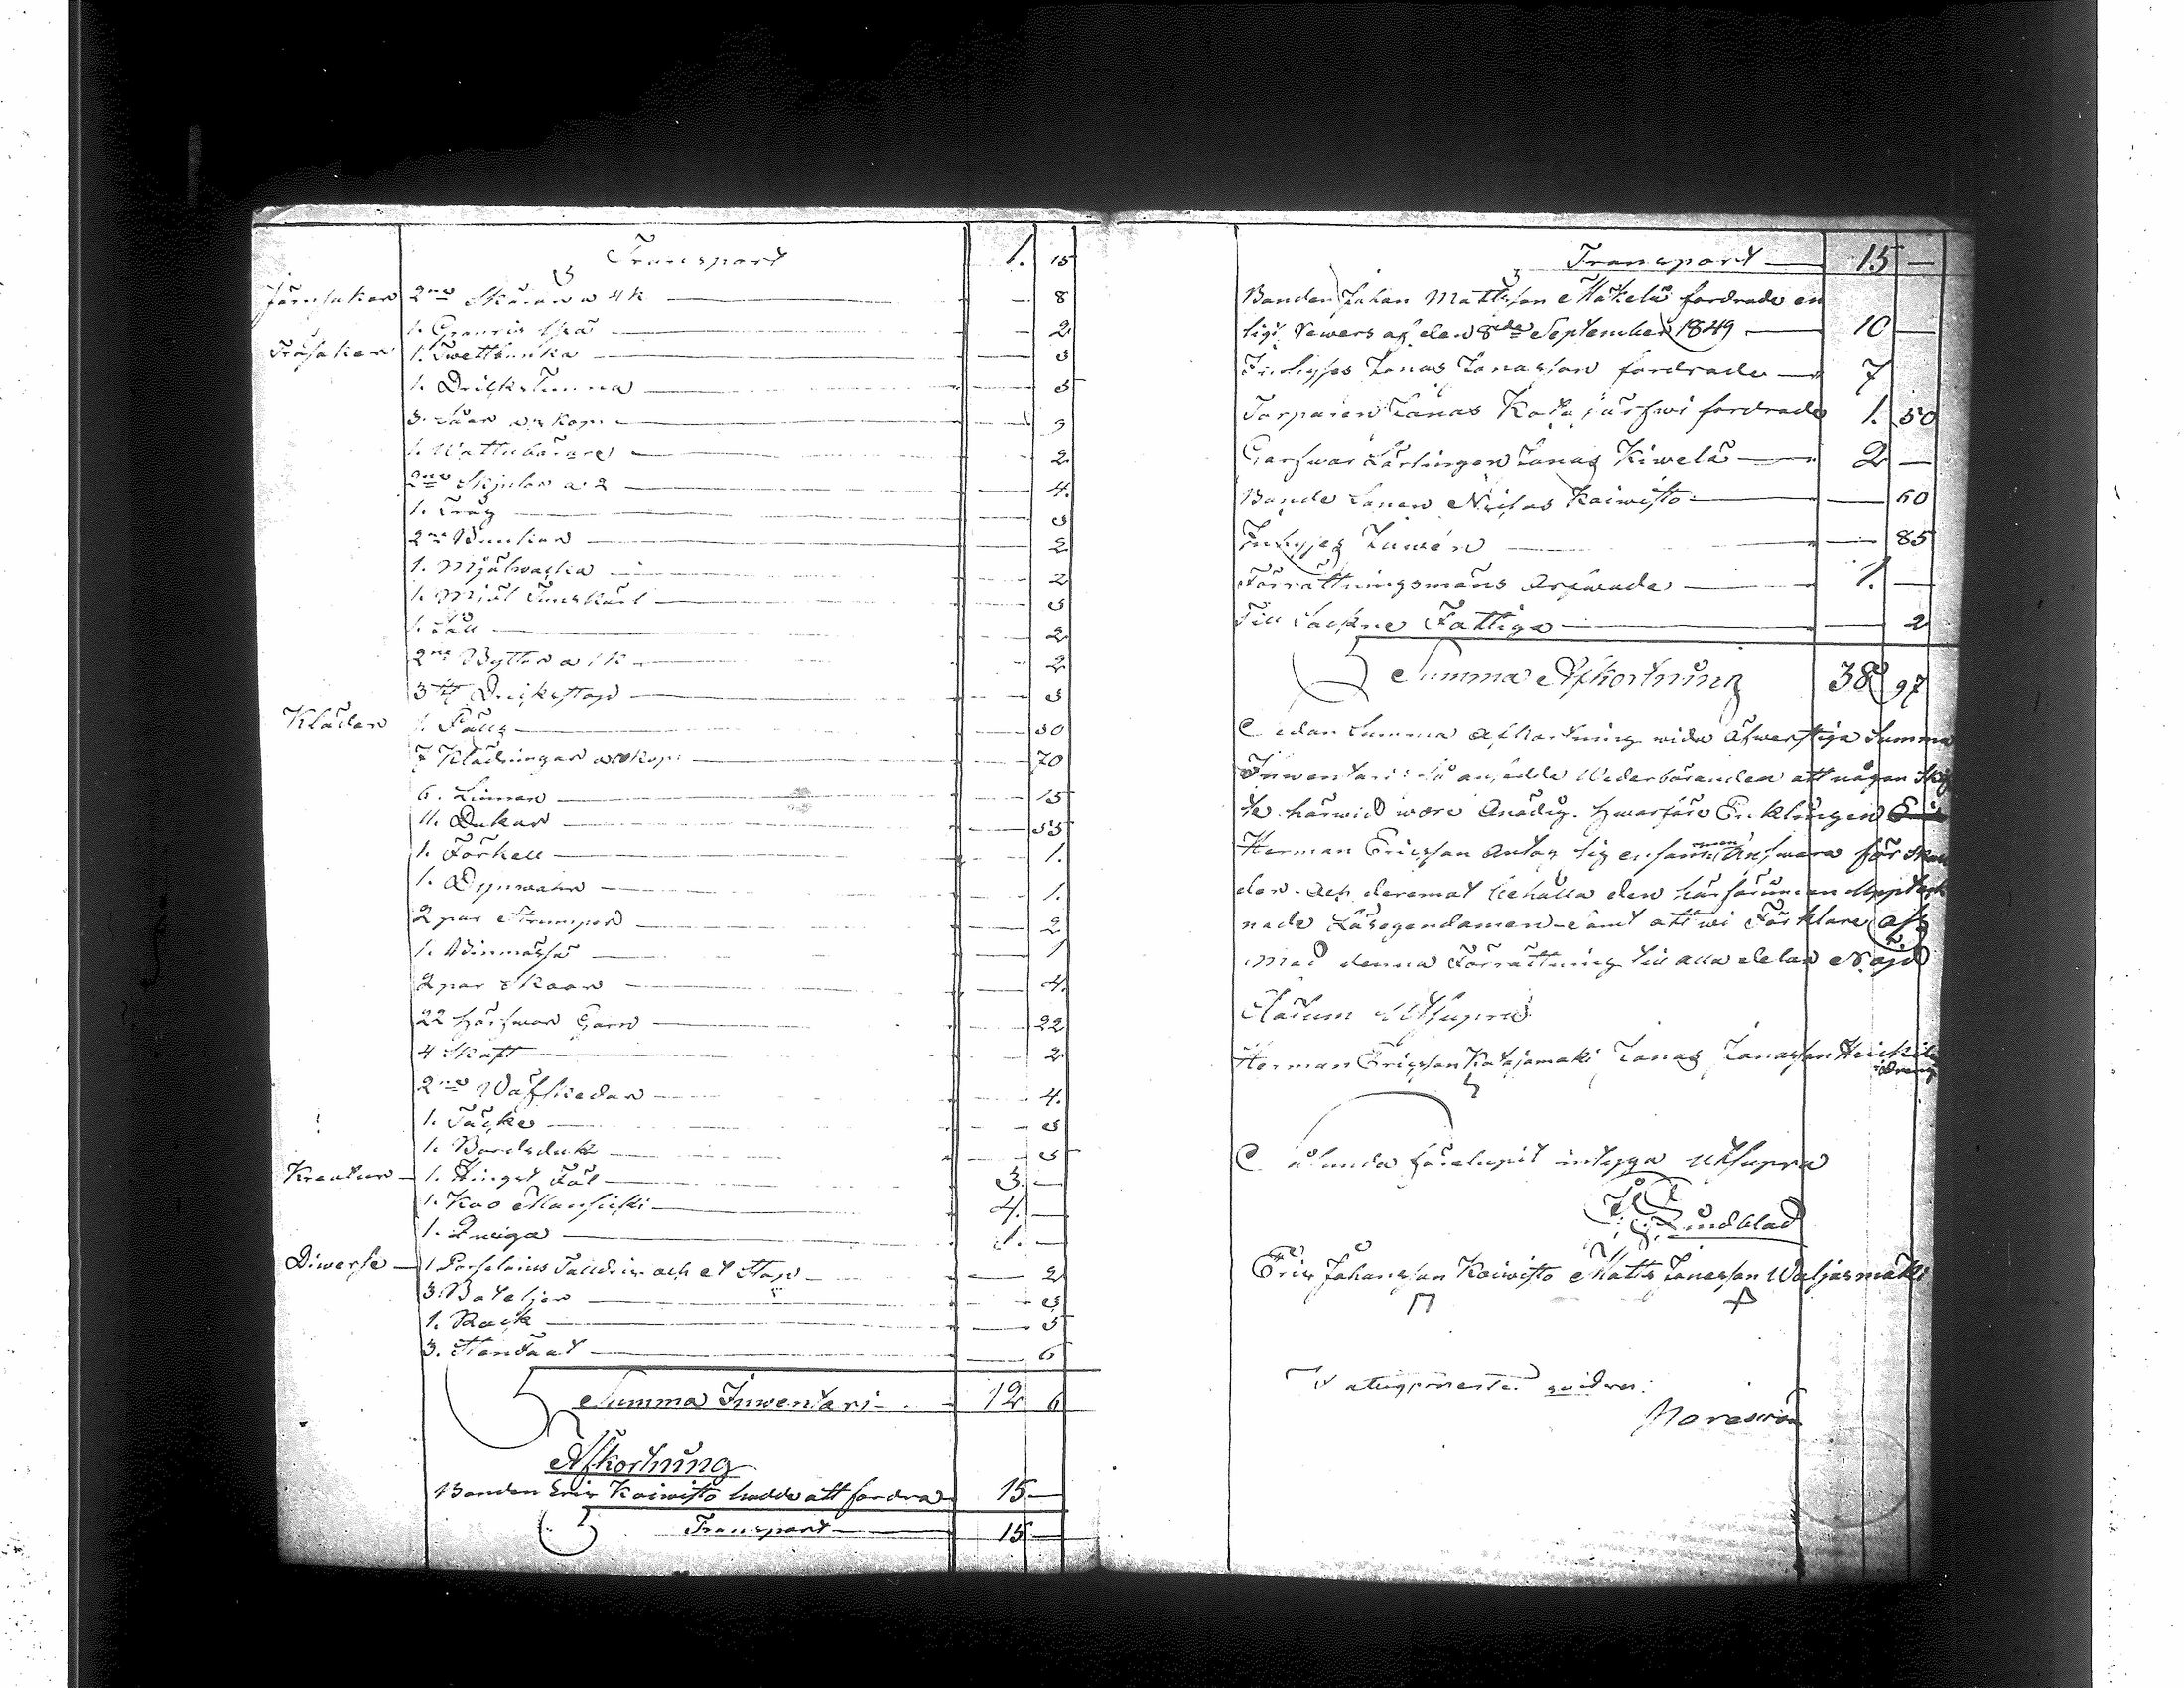 Transport 1. 15
Järnsaker 2ne Skäror a 4 k — 8
1. — 2
Träsaker 1. Twettbunka — 3
1. Drickstunna — 5
3. Såar — 9
1. Wattubärare — 2
2ne Skjulor a 2 — 4.
1. Tråg — 3
2ne Bunkar — 2
1. Mjölwacka — 2
1. Mjöl — 3
1. Såll — 2
2ne Byttor a 1 k — 2
3 st Drickstop — 3
Kläder 1. Fäll — 50
7 Klädningar a 10 kop: — 70
6. Linnen — 15
11. Dukar — 55
1. Förkell — 1.
1. Dynwahr — 1.
2 par Strumpor — 2
1. Winmössa — 1
2 par Skoor — 4.
22 Härfwor Garn — 22
4 Skaft — 2
2ne Wäfskedar — 4.
1. Täcke — 3
1. Bordsduk — 3
Kreatur 1. Hingst Föl 3. —
1. Koo Mansicki 4. —
1. Quiga 1. —
Diwerse 1 Porselains Talldrik och et Stop — 2
3. Bateljer — 3
1. Rock — 5
3. — 6
Summa Inwentari 12 6
Afkortning
Bonden Eric Koiwisto hadde att fordra 15 —
Transport 15 —
Transport 15 —
Bonden Johan Mattsson Mäkelä fordrade en
ligt Rewers af den 8de September 1849 10 —
Inhyses Jonas Jonasson fordrade 7
Torparen Jonas Katajärfwi fordrade 1. 50
Garfwar Lärlingen Jonas Kiwelä 2 —
Bonde Sonen Niclas Koiwisto — 60
Inhyses Juwén — 85
Förrättningsmäns Arfwode 1. —
Till Sockne Fattiga — 2
Summa Afkortning 38 97
Sedan Summa Afkortning wida Öfwerstiga Summa
Inwentari: så ansedde Wederböranden att någon Skif
te härwid wore Onödig. hwarföre Enklingen
Herman Ericsson Antog sig ensamman Answara för Skul
der. Och deremot behålla den härförinnan Uppteck
nade Lösegendomen. samt att wi Förklare oss
med denna Förrättning till alla delar Nöjd
Datum Utsupra
Herman Ericsson Katajamäki Jonas Jonasson Heickilä
dräng
Sålunda förelupit intyga Utsupra
Lindblad
Eric Johansson Koiwisto Matts Jonasson Waljasmäki